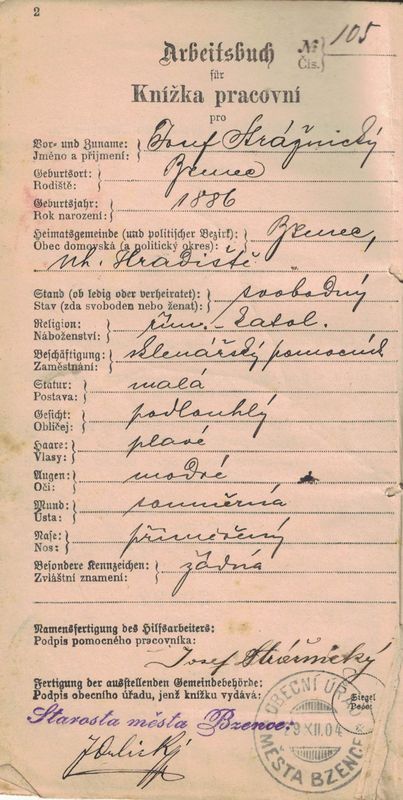 2
Arbeitsbuch
№ 105
Čís.
für
Knížka pracovní
pro
Vor- und Zuname: Josef Strážnický
Jméno a příjmení:
Geburtsort: Bzenec
Rodiště:
Geburtsjahr: 1886
Rok narození:
Heimatsgemeinde (und politischer Bezirk): Bzenec,
Obec domovská (a politický okres):
uh. Hradiště
Stand (ob ledig oder verheiratet): svobodný
Stav (zda svoboden nebo ženat):
Religion: řím. katol.
Náboženství:
Beschäftigung: sklenářský pomocník
Zaměstnání:
Statur: malá
Postava:
Gesicht: podlouhlý
Obličej:
Haare: plavé
Vlasy:
Augen: modré
Oči:
Mund: souměrná
Ústa:
Nase: přiměřený
Nos:
Besondere Kennzeichen: žádná
Zvláštní znamení:
Namensfertigung des Hilfsarbeiters:
Podpis pomocného pracovníka:
Josef Strážnický
Fertigung der ausstellenden Gemeindebehörde:
Podpis obecního úřadu, jenž knížku vydává:
Siegel
Peče:
Starosta města Bzence:
OBECNÍ ÚŘAD
9 XII. 04
MĚSTA BZENCE